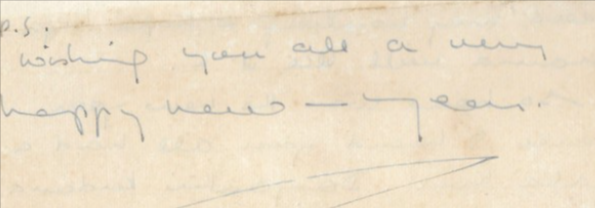 P.S.
Wishing you all a very
happy new - year.